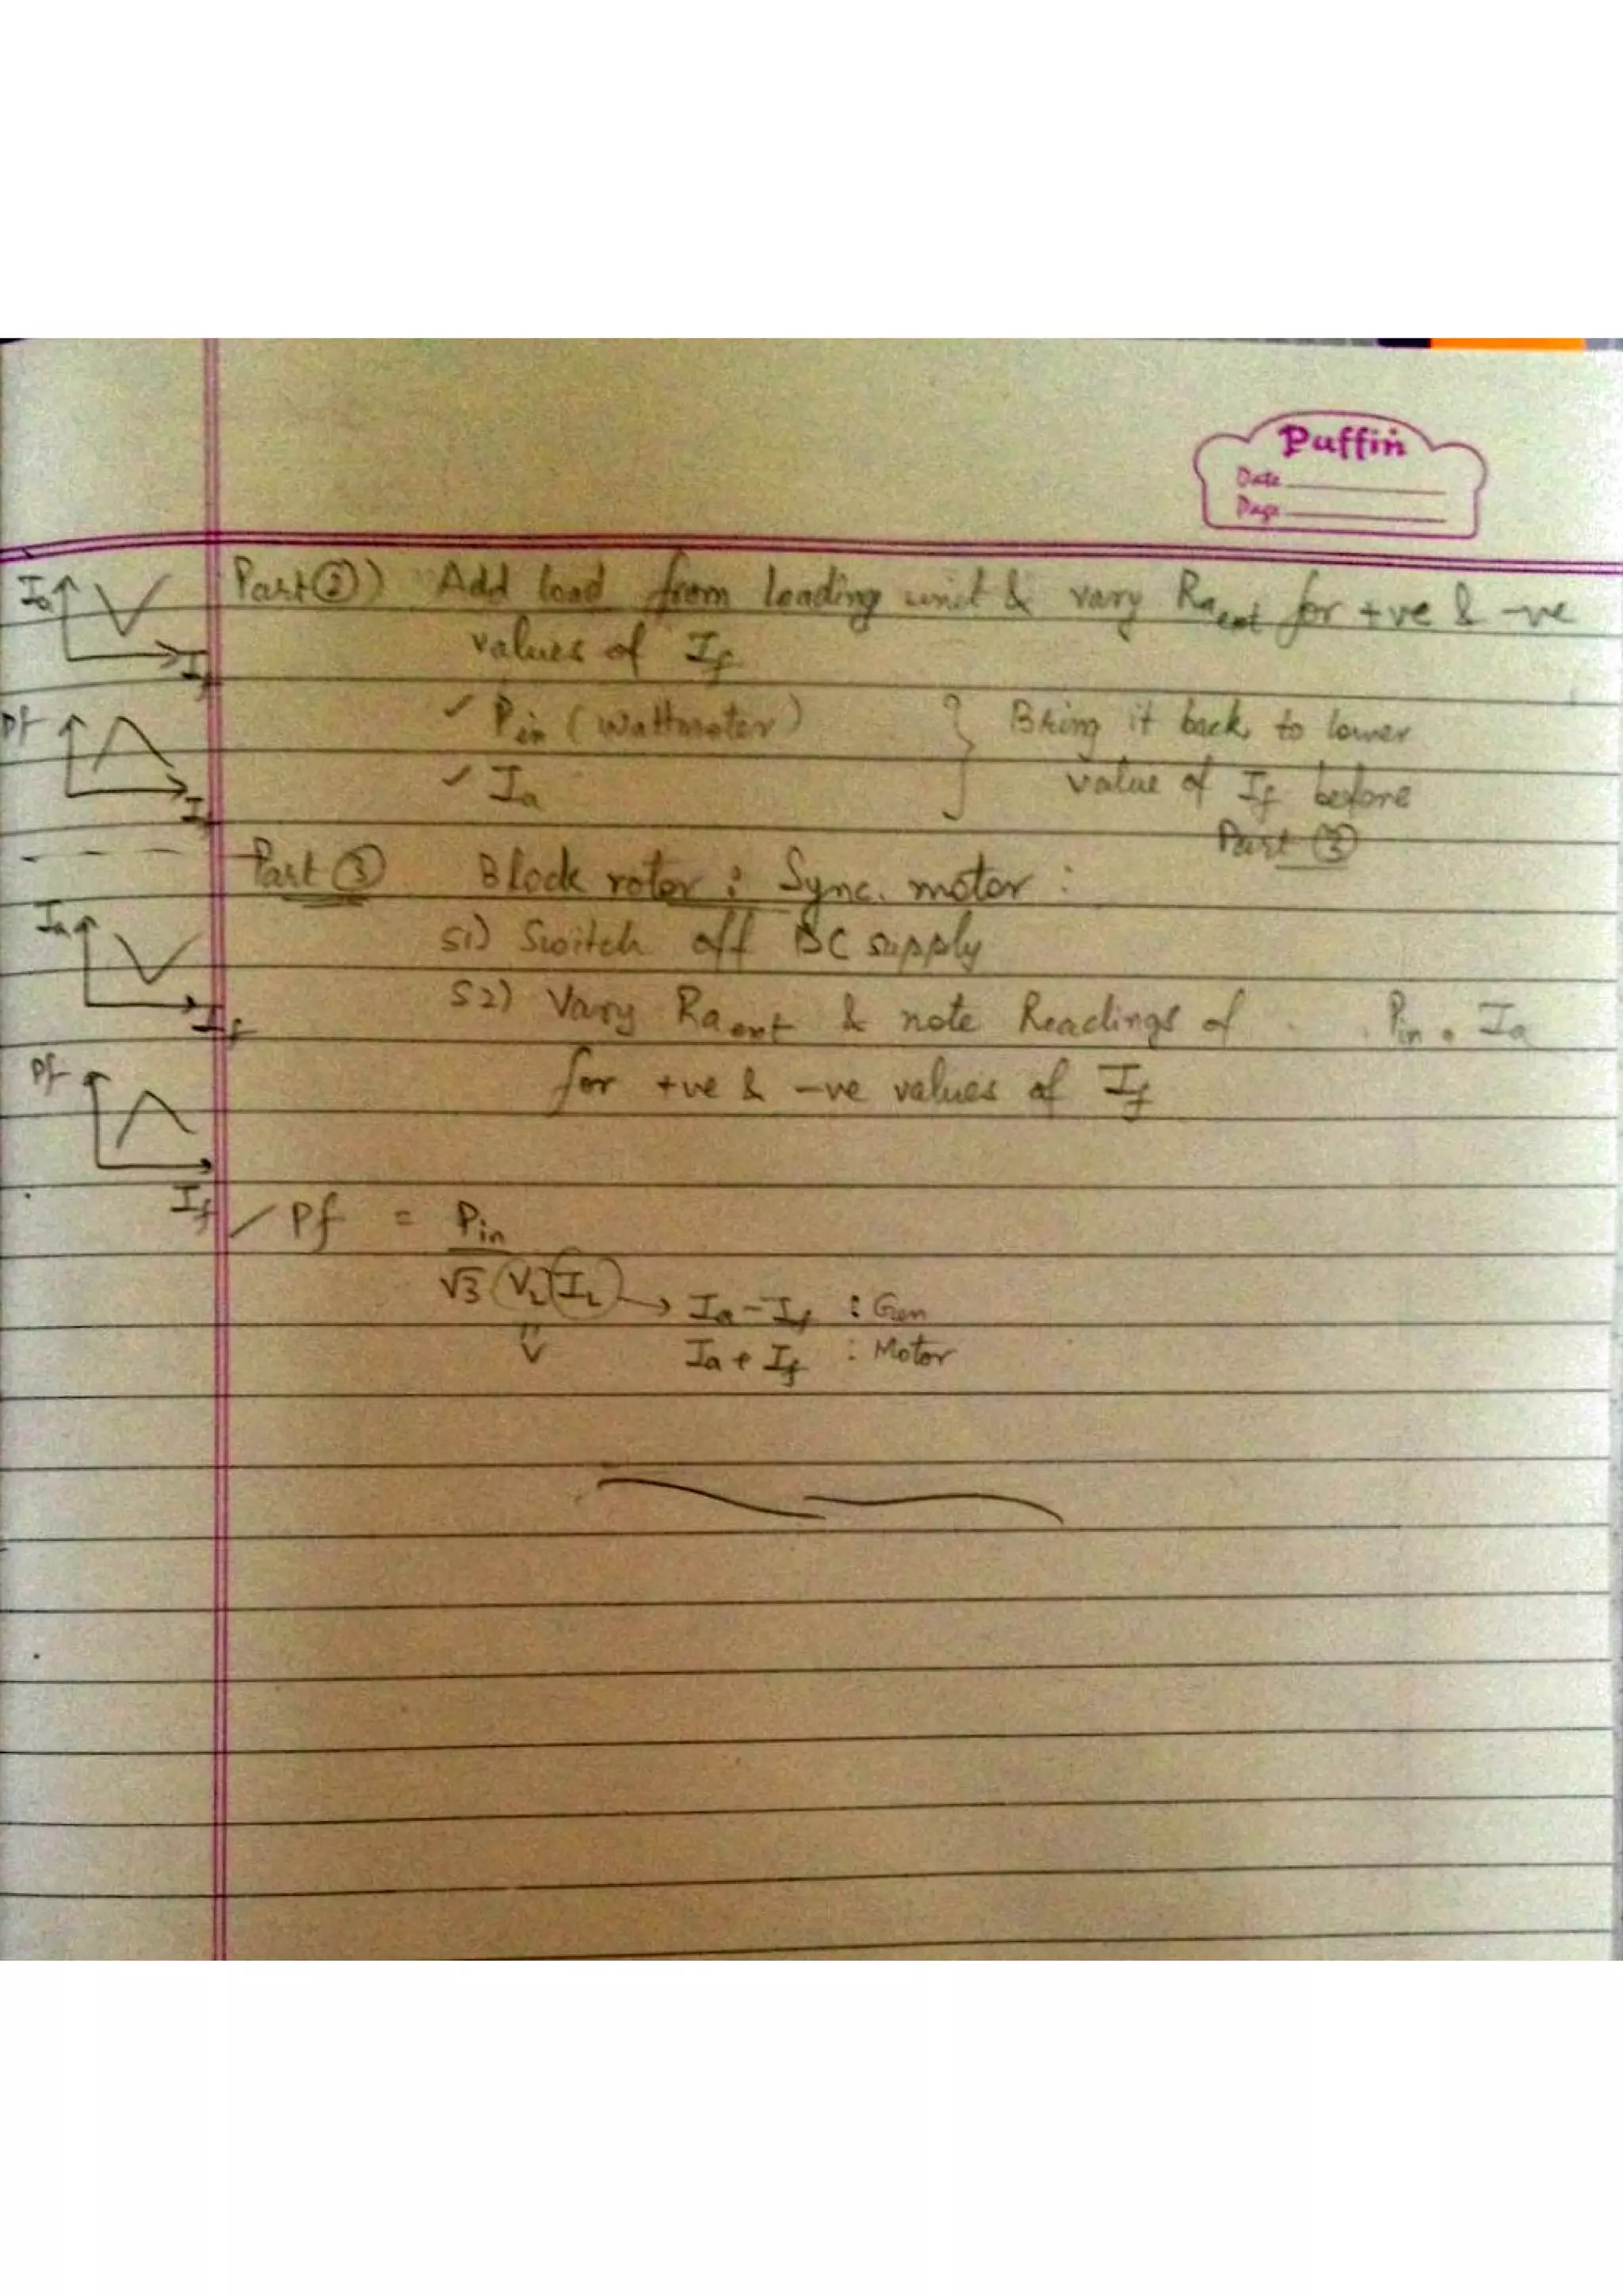 Puffin
Date
Page
Part ②) Add load from loading unit & vary Ra ext for +ve & -ve
values of If
✓ Pin (Wattmeter)
✓ Ia
} Bring it back to lower
value of If before
Part ③
Part ③ Block rotor : Sync. motor :
S1) Switch off DC supply
S2) Vary Ra ext & note Readings of Pin, Ia
for +ve & -ve values of If
/ Pf = Pin
√3 (VL)(IL) → Ia - If : Gen
" Ia + If : Motor
V
If
Pf
If
Ia
If
Pf
If